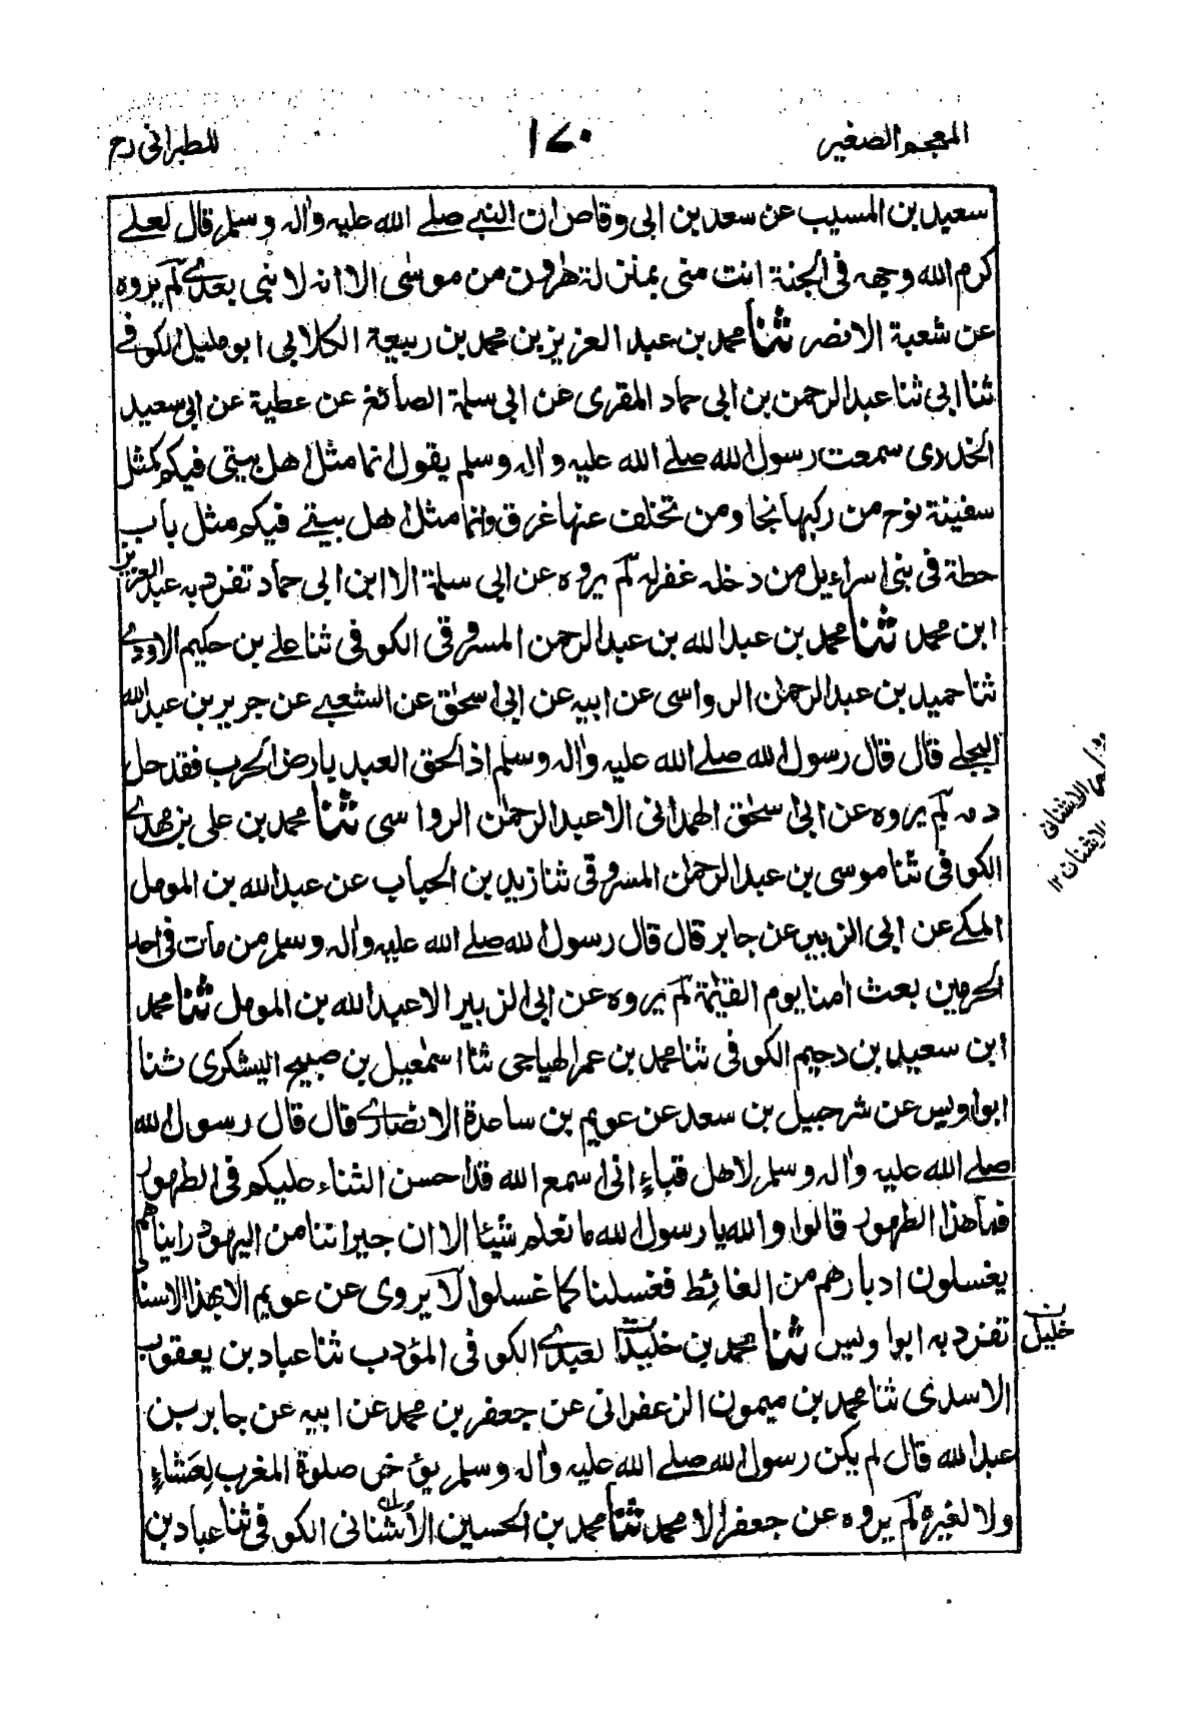 المعجم الصغير ١٧٠ للطبرانی رح
سعید بن المسیب عن سعد بن ابی وقاص ان النبی صلے الله علیه واٰله وسلم قال لعلے
کرم الله وجهه فی الجنة انت منی بمنزلة هٰرون من موسٰی الا انه لا نبی بعدی لم یروه
عن شعبة الا نصر ثنا محمد بن عبد العزیز بن محمد بن ربیعة الکلابی ابو ملیل الکوفے
ثنا ابی ثنا عبد الرحمن بن ابی حماد المقری عن ابی سلمة الصائغ عن عطیة عن ابی سعید
الخدری سمعت رسول الله صلے الله علیه واٰله وسلم یقول انما مثل اهل بیتی فیکم کمثل
سفینة نوح من رکبها نجا ومن تخلف عنها غرق وانما مثل اهل بیتے فیکم مثل باب
حطة فی بنی اسراءیل من دخله غفر له لم یروه عن ابی سلمة الا ابن ابی حماد تفرد به عبد العزیز
ابن محمد ثنا محمد بن عبد الله بن عبد الرحمن المسروقی الکوفی ثنا علے بن حکیم الاودے
ثنا حمید بن عبد الرحمٰن الرواسی عن ابیه عن ابی اسحٰق عن الشعبے عن جریر بن عبد الله
البجلے قال قال رسول الله صلے الله علیه واٰله وسلم اذ الحق العبد بارض الحرب فقد حل
دمه لم یروه عن ابی اسحٰق الهمدانی الا عبد الرحمٰن الرواسی ثنا محمد بن علی بن مهدے
الکوفی ثنا موسی بن عبد الرحمٰن المسروقی ثنا زید بن الحباب عن عبد الله بن المومل
المکے عن ابی الزبیر عن جابر قال قال رسول الله صلے الله علیه واٰله وسلم من مات فی احد
الحرمین بعث اٰمنا یوم القیٰمة لم یروه عن ابی الزبیر الا عبد الله بن المومل ثنا محمد
ابن سعید بن دحیم الکوفی ثنا محمد بن عمر الهیاجی ثنا اسمٰعیل بن صبیح الیشکری ثنا
ابو اویس عن شرحبیل بن سعد عن عویم بن ساعدة الانصارے قال قال رسول الله
صلے الله علیه واٰله وسلم لاهل قباء انی اسمع الله قد احسن الثناء علیکم فی الطهور
فما هذا الطهور قالوا والله یا رسول الله ما نعلم شیئا الا ان جیراننا من الیهود راینا هم
یغسلون ادبارهم من الغائط فغسلنا کما غسلوا لا یروی عن عویم الا بهذا الاسناد
تفرد به ابو اویس ثنا محمد بن خلید العبدے الکوفی المؤدب ثنا عباد بن یعقوب
خلیل
الاسدی ثنا محمد بن میمون الزعفرانی عن جعفر بن محمد عن ابیه عن جابر بن
عبد الله قال لم یکن رسول الله صلے الله علیه واٰله وسلم یؤخر صلوة المغرب لعَشاءٍ
ولا لغیره لم یروه عن جعفر الا محمد ثنا محمد بن الحسین الاُشنانی الکوفی ثنا عباد بن
الاشنان ١٢